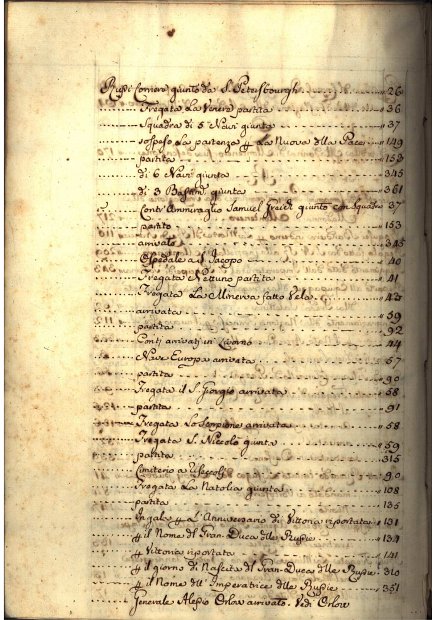 Russi Corriere giunto da S. Petersbourgh 26
Fregata La Venere partita 36
Squadra di 5 Navi giunta 37
sospeso La partenza p La Nuova della Pace 149
partita 153
di 6 Navi giunta 345
di 3 giunta 361
Contr'Ammiraglio Samuel Greich giunto con Squadra 37
partito 153
arrivato 345
Ospedale a S. Jacopo 40
Fregata Nettuno partita 41
Fregata La Minerva fatto Vela 43
arrivata 59
partita 92
Conti arrivati in Livorno 44
Nave Europa arrivata 57
partita 90
Fregata il S. Giorgio arrivata 58
partita 91
Fregata Lo Scorpione arrivata 58
Fregata S. Niccolò giunta 59
partita 315
Cimiterio a 90
Fregata La Natolia giunta 108
partita 135
In gala p L'Anniversario di Vittoria riportata 131
p il Nome del Gran-Duca delle Russie 134
p Vittoria riportata 141
p il giorno di Nascita del Gran-Duca delle Russie 310
p il Nome dell'Imperatrice delle Russie 351
Generale Alessio Orlow arrivato. Vedi Orlow